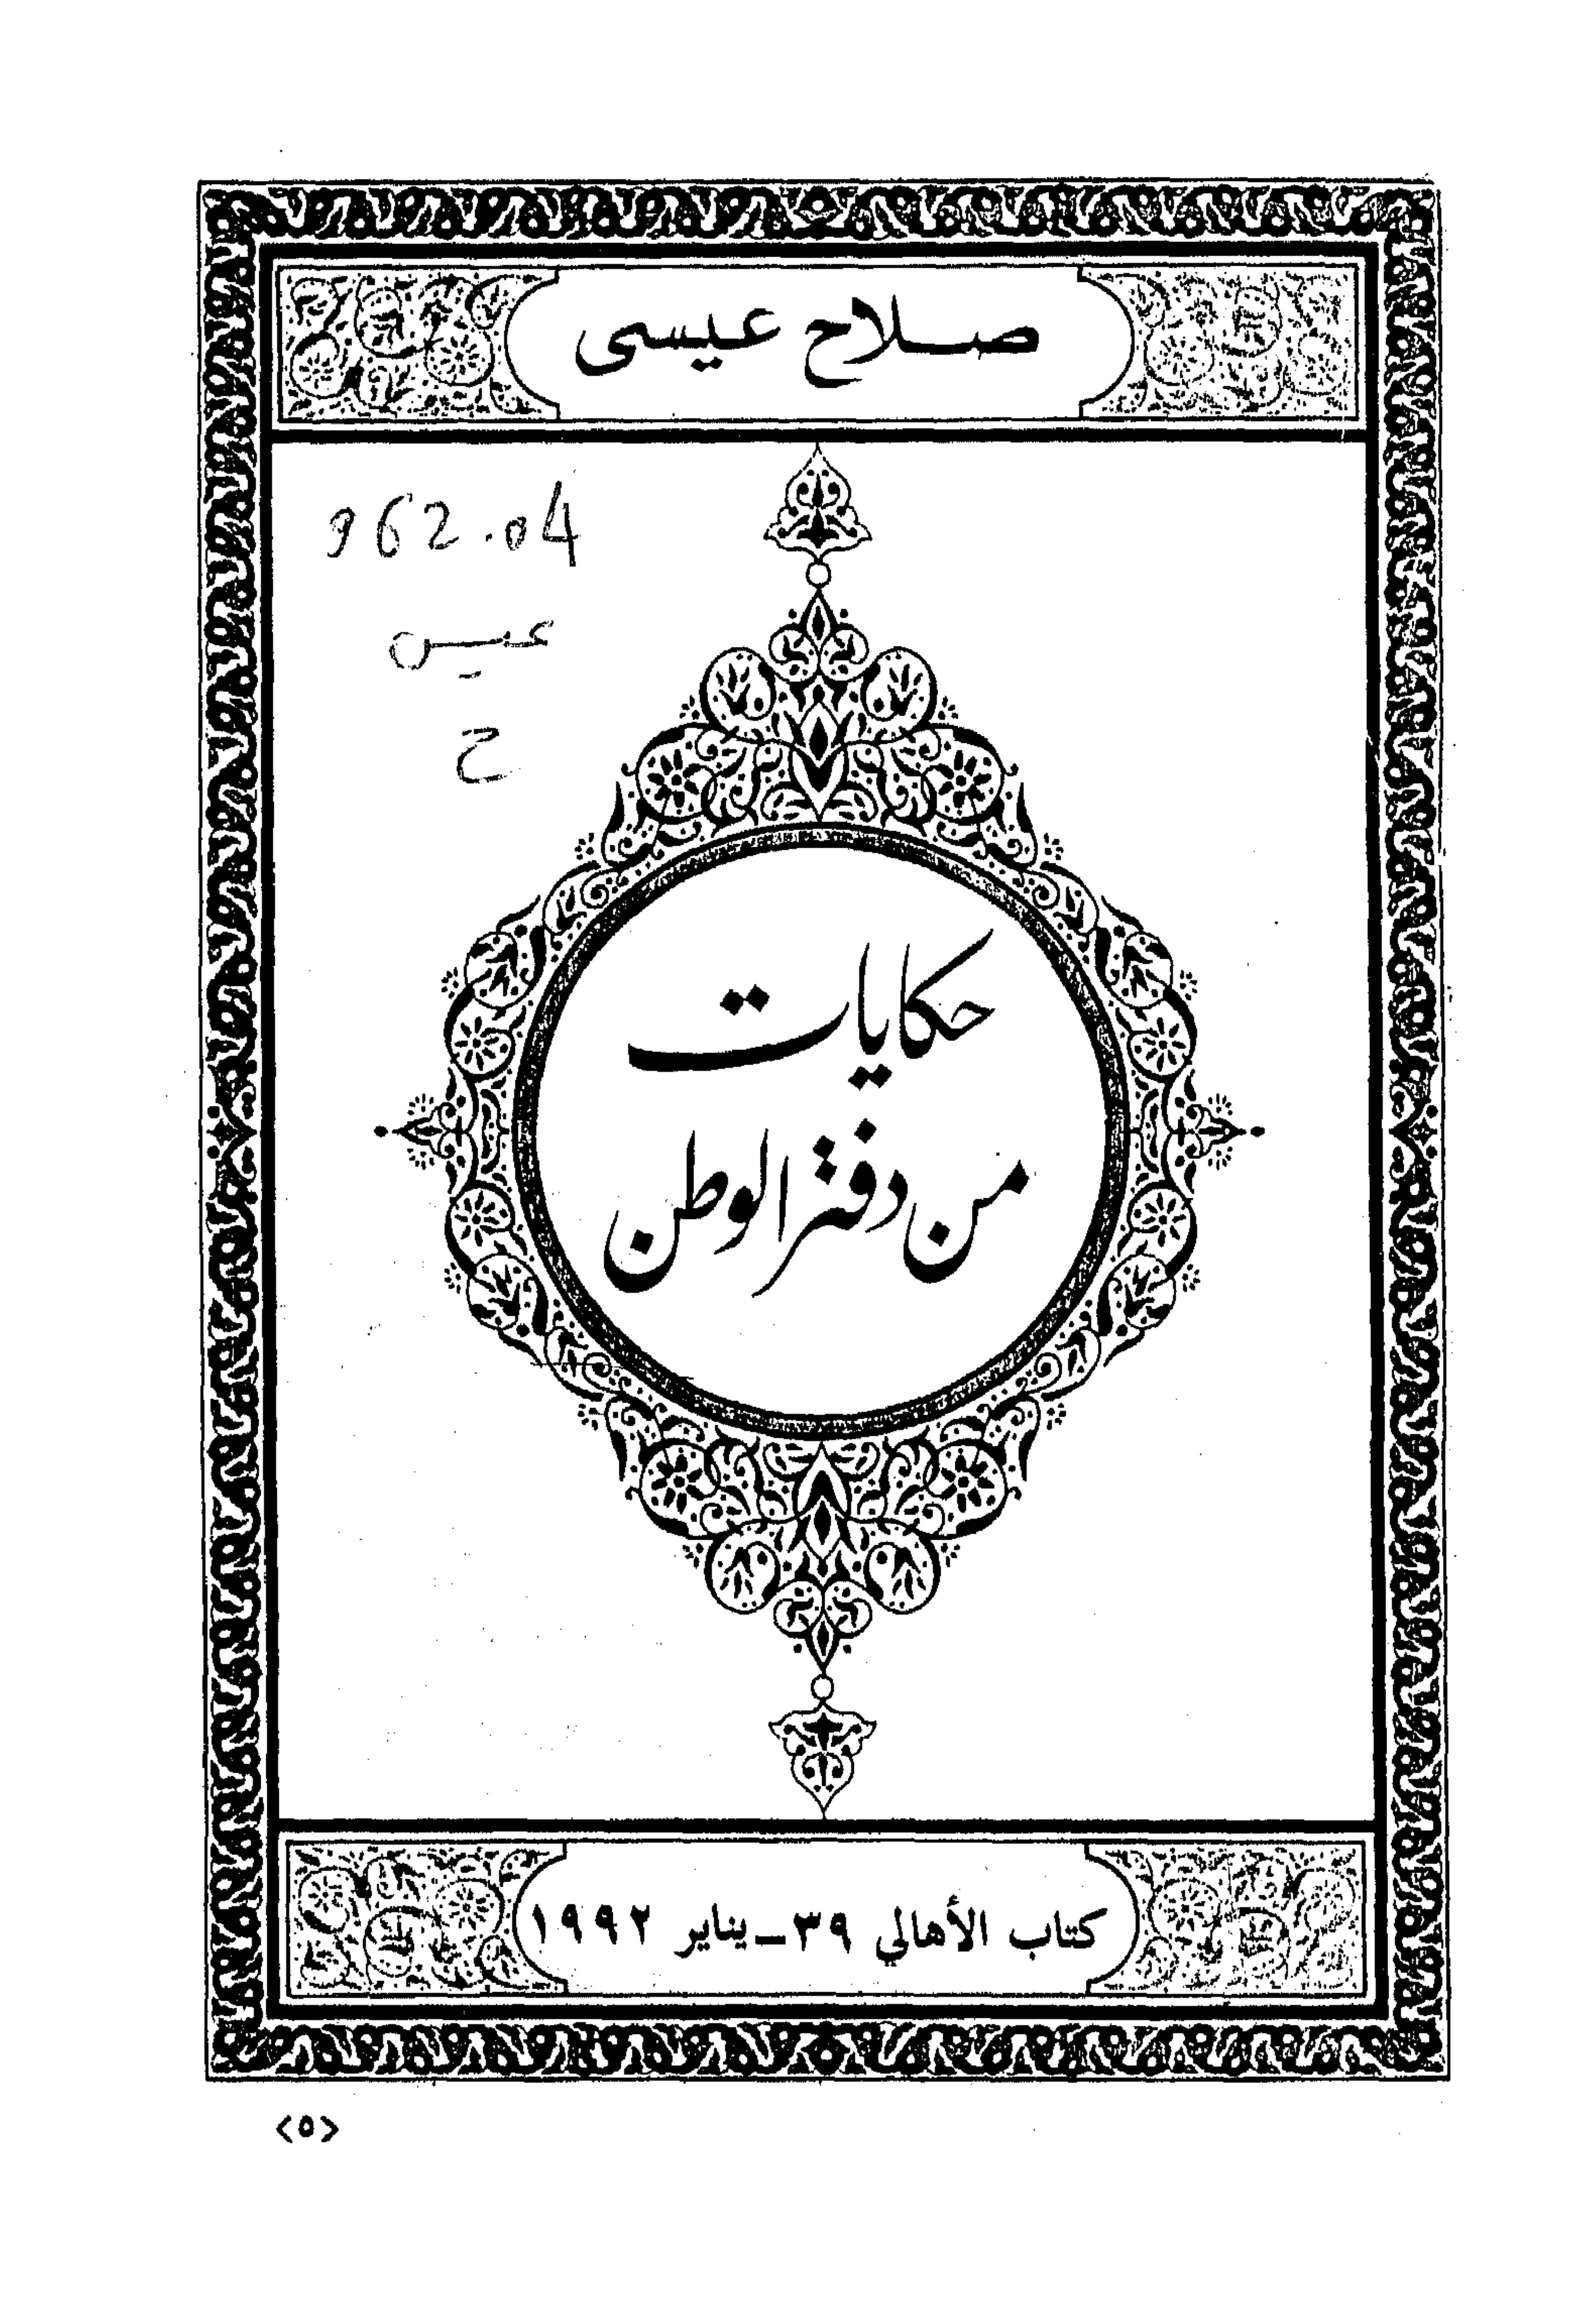 صلاح عيسى
962.04
عيس
ح
حكايات
من دفتر الوطن
كتاب الأهالي ٣٩ - يناير ١٩٩٢
<٥>